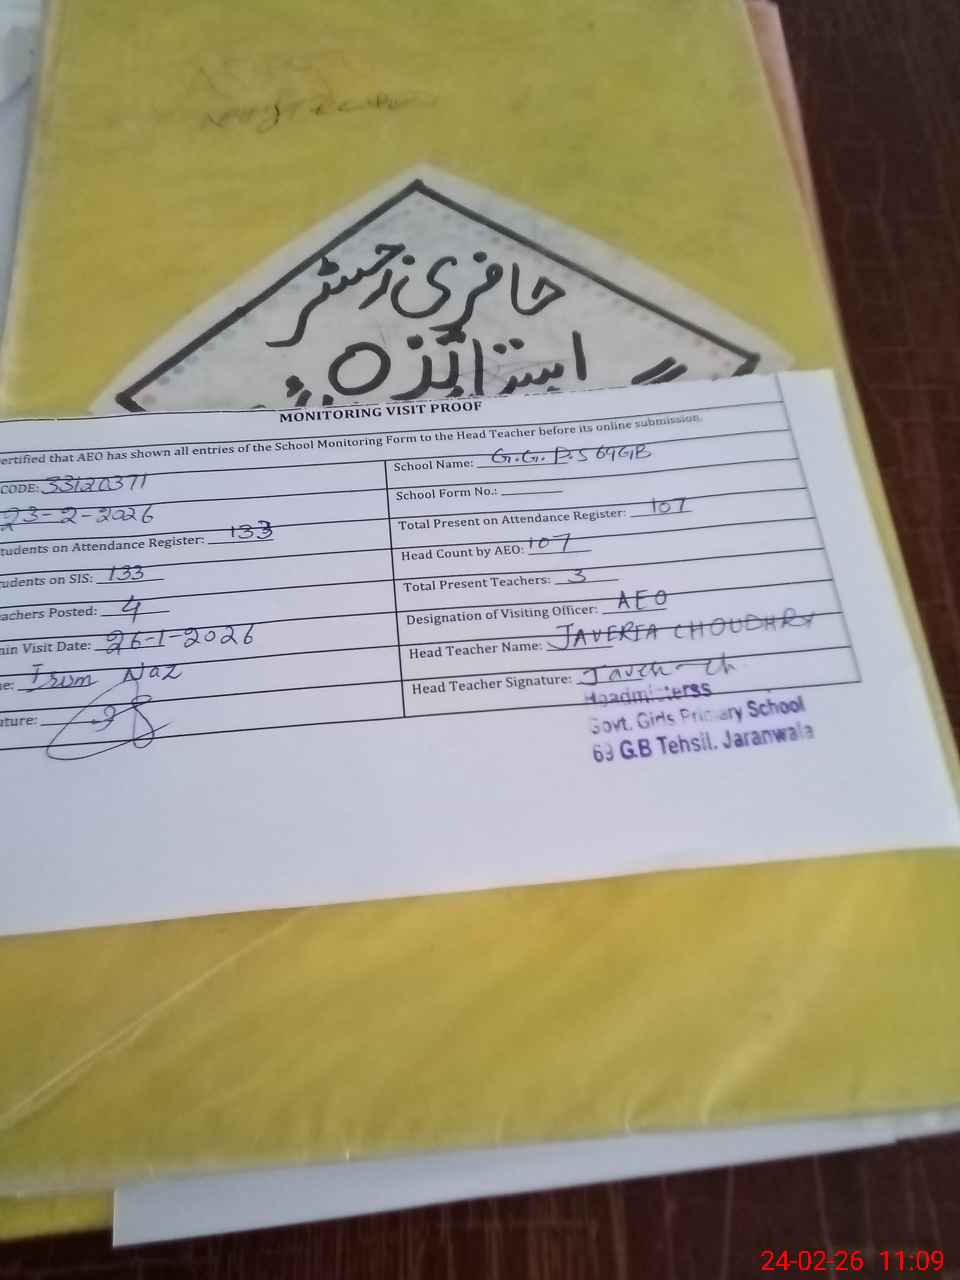 حاضری رجسٹر
اساتذہ
MONITORING VISIT PROOF
ertified that AEO has shown all entries of the School Monitoring Form to the Head Teacher before its online submission.
CODE: 33120371
School Name: G.G.P.S 69GB
23-2-2026
School Form No.:
tudents on Attendance Register: 133
Total Present on Attendance Register: 107
udents on SIS: 133
Head Count by AEO: 107
achers Posted: 4
Total Present Teachers: 3
ain Visit Date: 26-1-2026
Designation of Visiting Officer: AEO
e: Irum Naz
Head Teacher Name: JAVERIA CHOUDHRY
ture:
Head Teacher Signature:
Headmisterss
Govt. Girls Primary School
69 G.B Tehsil. Jaranwala
24-02-26 11:09